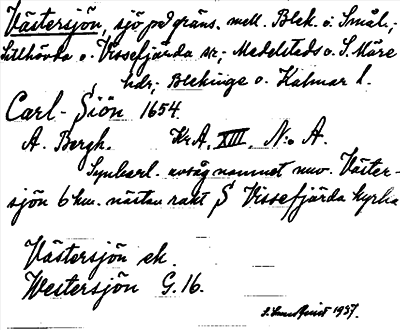 Västersjön, sjö på gräns. mell. Blek. o. Smål.;
Sillhövda o. Vissefjärda sr; Medelstads o. S. Möre
hdr; Blekinge o. Kalmar l.
Carl-Siön 1654.
A. Bergh. Kr.A. XIII. N:o A.
Synbarl. avsåg namnet nuv. Väster-
sjön 6 km. nästan rakt S Vissefjärda kyrka
Västersjön ek.
Westersjön G.16.
1937.